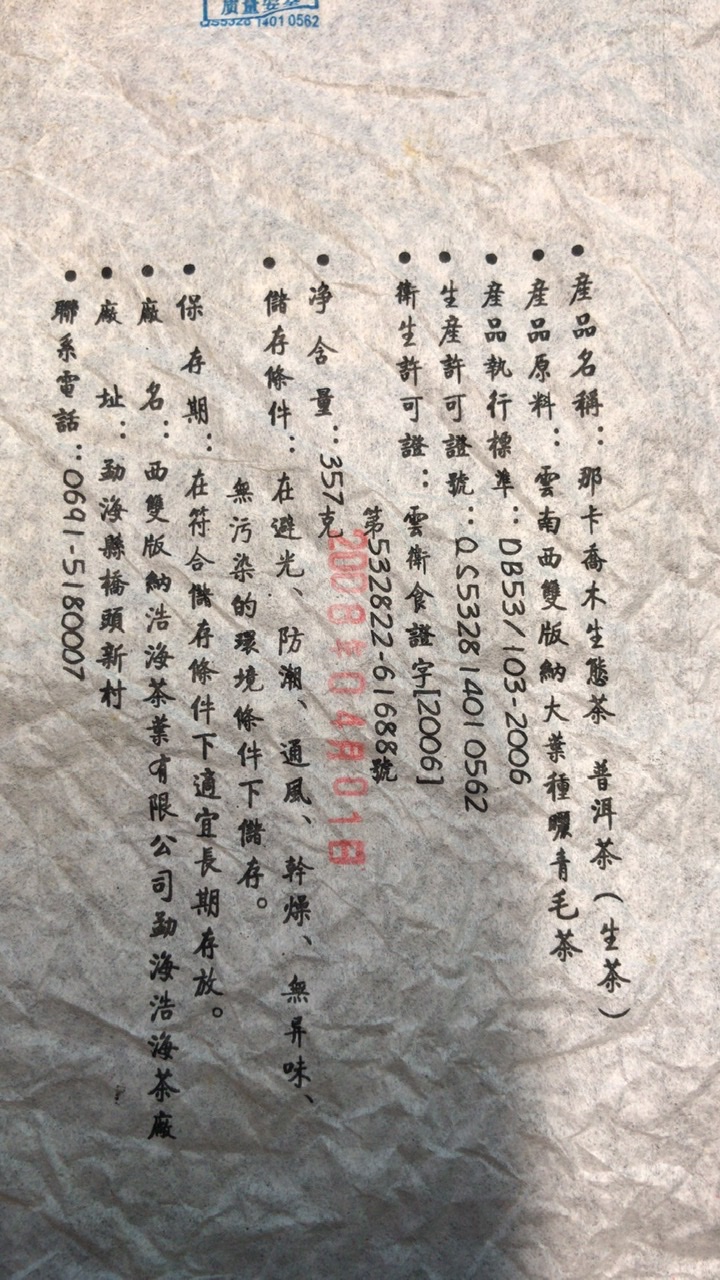 质量安全
QS5328 1401 0562
●產品名稱：那卡喬木生態茶 普洱茶（生茶）
●產品原料：雲南西雙版納大葉種曬青毛茶
●產品執行標準：DB53/103-2006
●生產許可證號：QS5328 1401 0562
●衛生許可證：雲衛食證字[2006]
第532822-61688號
●净含量：357克
2008年04月01日
●儲存條件：在避光、防潮、通風、幹燥、無异味、
無污染的環境條件下儲存。
●保存期：在符合儲存條件下適宜長期存放。
●廠名：西雙版納浩海茶業有限公司勐海浩海茶廠
●廠址：勐海縣橋頭新村
●聯系電話：0691-5180007